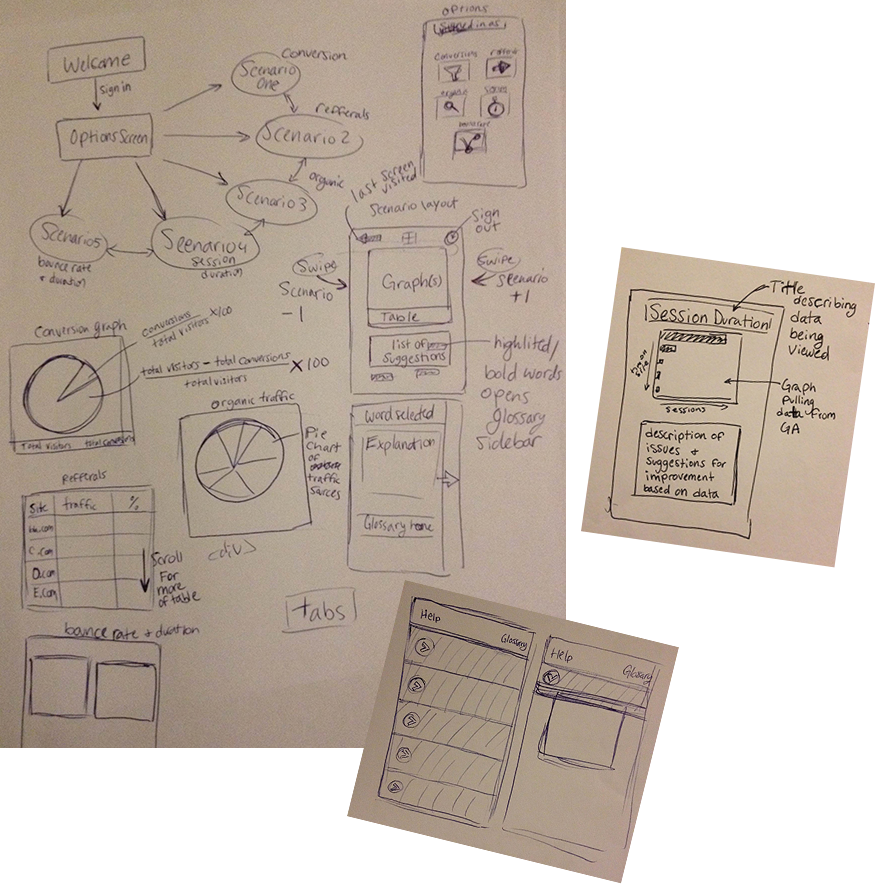 Welcome
sign in
Options Screen
Scenario
One
Conversion
Scenario 2
refferals
Scenario 3
organic
Scenario 4
session
duration
Scenario 5
bounce rate
+ duration
options
Conversions
organic
last screen
visited
Scenario layout
Sign
out
Swipe
Scenario
-1
Graph(s)
Table
list of
suggestions
Swipe
scenario
+1
highlited/
bold words
opens
glossary
sidebar
Conversion graph
conversions
total visitors
x100
total visitors - total conversions
total visitors
x 100
Total visitors
total conversions
organic traffic
Pie
chart
of
traffic
sarces
<div>
word selected
Explanation
Glossary home
Refferals
Site
traffic
%
C.com
D.com
E.com
Scroll
For
more
of table
tabs
bounce rate + duration
Session Duration
Title
describing
data
being
viewed
sessions
Graph
Pulling
data from
GA
description of
issues +
suggestions for
improvement
based on data
Help
Glossary
Help
Glossary